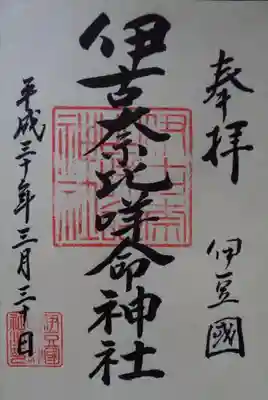 奉拝 伊豆國
伊古奈比咩命神社
平成三十年三月三十日